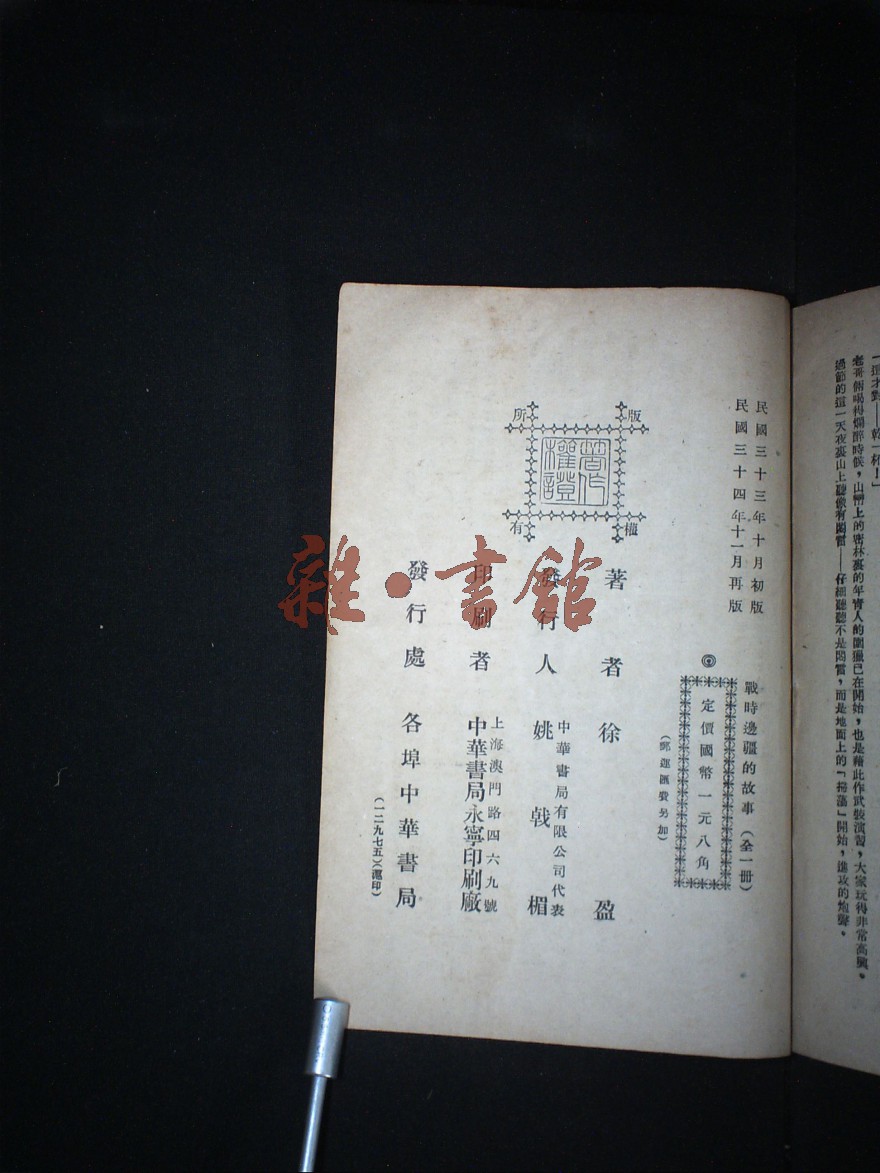 「這才對——乾一杯！」
老哥倆喝得爛醉時候，山巒上的密林裏的年靑人的圍獵已在開始，也是藉此作武裝演習，大家玩得非常高興。
過節的這一天夜裏山上聽像有悶雷——仔細聽聽不是悶雷，而是地面上的「掃蕩」開始，進攻的炮聲。
民國三十三年十月初版
民國三十四年十一月再版
戰時邊疆的故事（全一冊）
◎定價國幣一元八角
（郵運匯費另加）
版權所有
著作權證
著者　徐盈
發行人　姚戟楣
中華書局有限公司代表
印刷者　中華書局永寧印刷廠
上海澳門路四六九號
發行處　各埠中華書局
（一二九七五）（滬印）
雜·書館